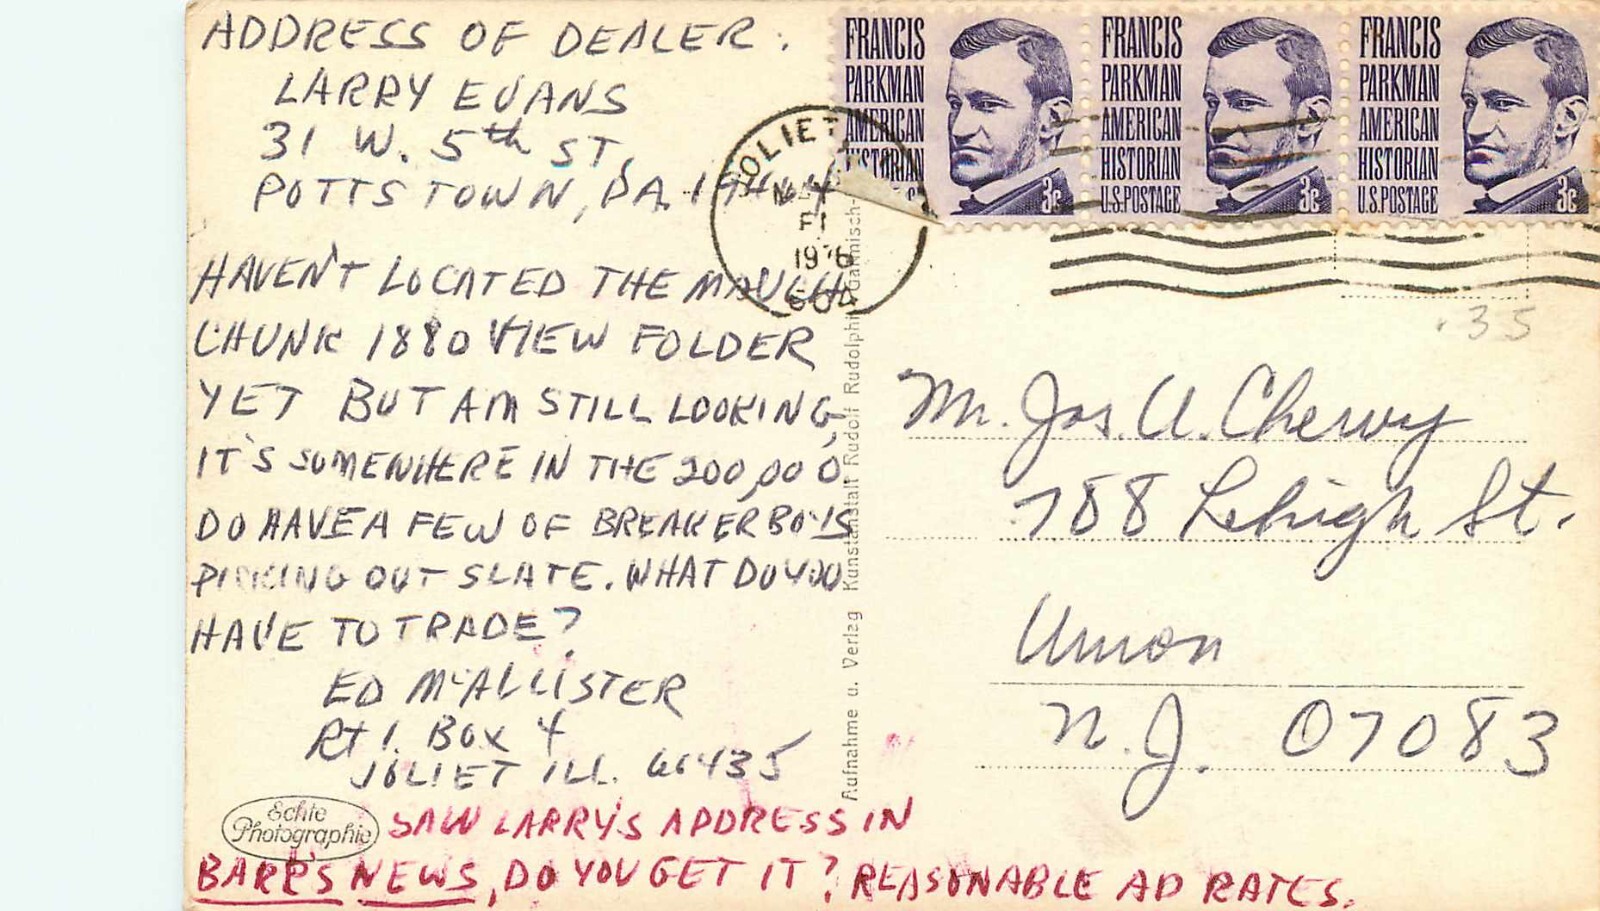 ADDRESS OF DEALER.
LARRY EVANS
31 W. 5th ST.
POTTSTOWN, PA. 19464
HAVEN'T LOCATED THE MAUCH
CHUNK 1880 VIEW FOLDER
YET BUT AM STILL LOOKING,
IT'S SOMEWHERE IN THE 200,000
DO HAVE A FEW OF BREAKER BOYS
PICKING OUT SLATE. WHAT DO YOU
HAVE TO TRADE?
ED McALLISTER
Rt 1. BOX 4
JOLIET ILL. 60435
SAW LARRY'S ADDRESS IN
BARR'S NEWS, DO YOU GET IT? REASONABLE AD RATES.
Echte
Photographie
Aufnahme u. Verlag Kunstanstalt Rudolf Rudolphi Garmisch-
JOLIET
1976
604
FRANCIS
PARKMAN
AMERICAN
HISTORIAN
3c
FRANCIS
PARKMAN
AMERICAN
HISTORIAN
U.S. POSTAGE
3c
FRANCIS
PARKMAN
AMERICAN
HISTORIAN
U.S. POSTAGE
3c
.35
Mr. Jos. A. Chervy
788 Lehigh St.
Union
N.J. 07083